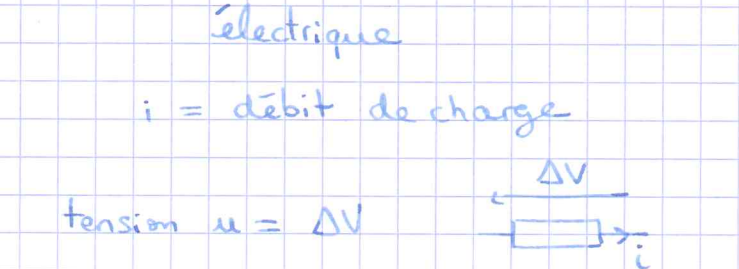 électrique
i = débit de charge
ΔV
tension u = ΔV
i